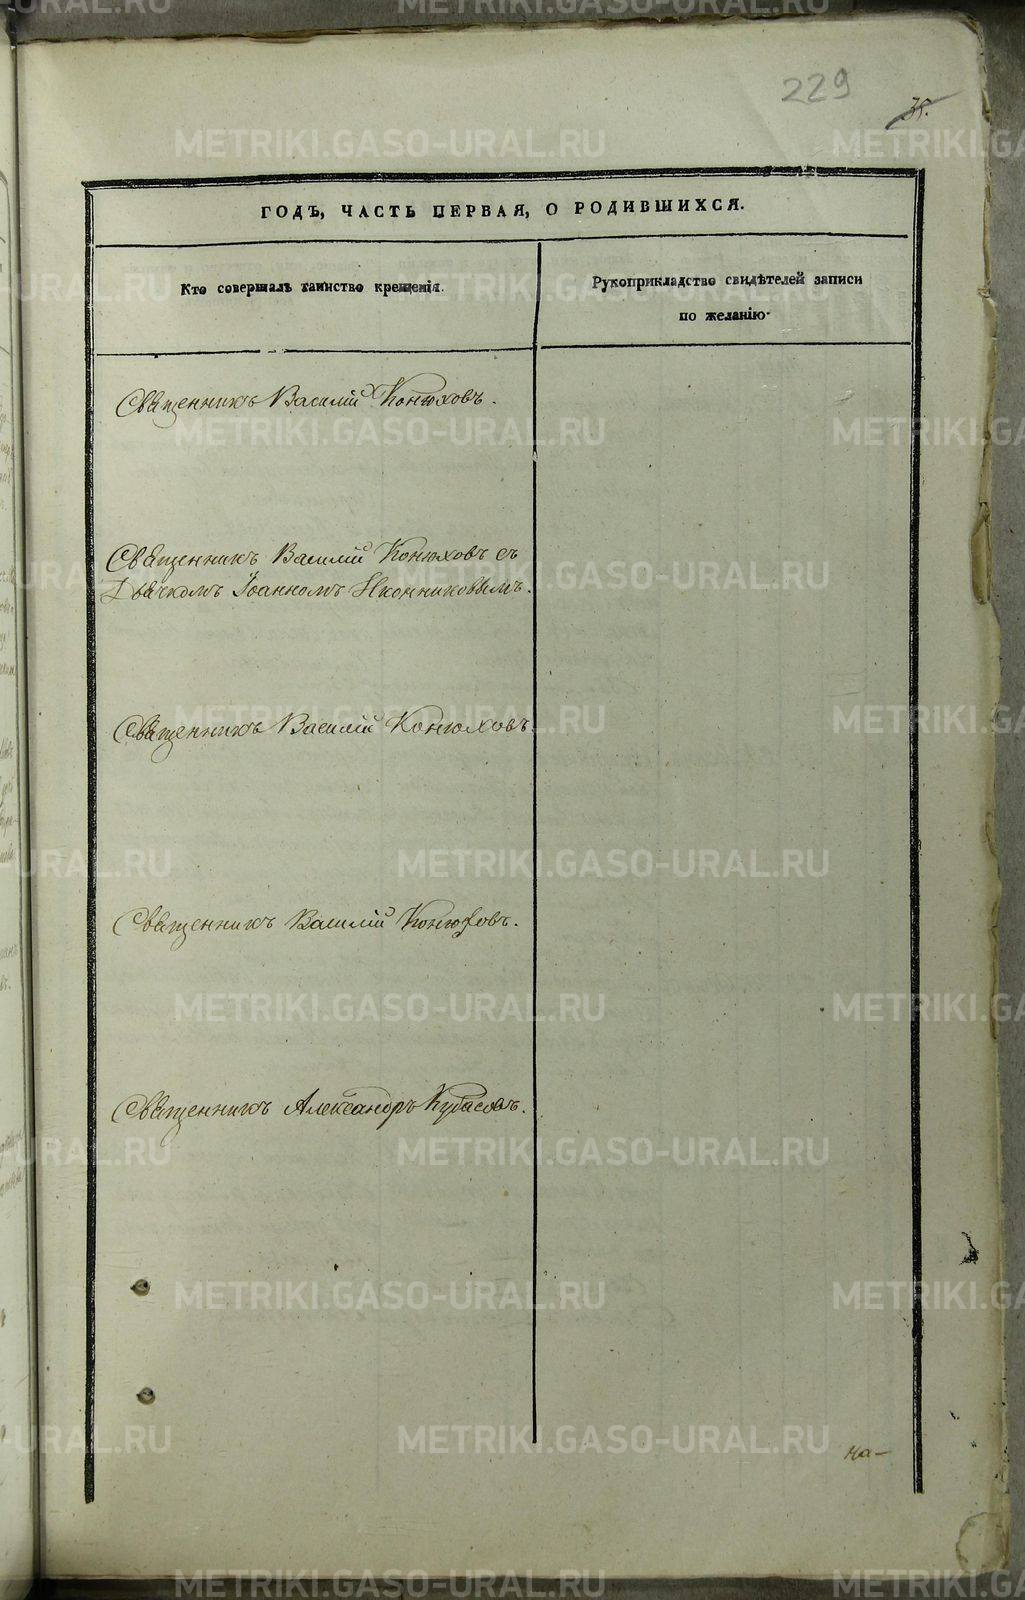 229
35.
ГОДЪ, ЧАСТЬ ПЕРВАЯ, О РОДИВШИХСЯ.
Кто совершалъ таинство крещенія.
Рукоприкладство свидѣтелей записи
по желанію.
Священникъ Василій Конюховъ.
Священникъ Василій Конюховъ съ
Дьячкомъ Іоанномъ Иконниковымъ.
Священникъ Василій Конюховъ
Священникъ Василій Конюховъ.
Священникъ Александръ Кубасовъ.
на-
METRIKI.GASO-URAL.RU